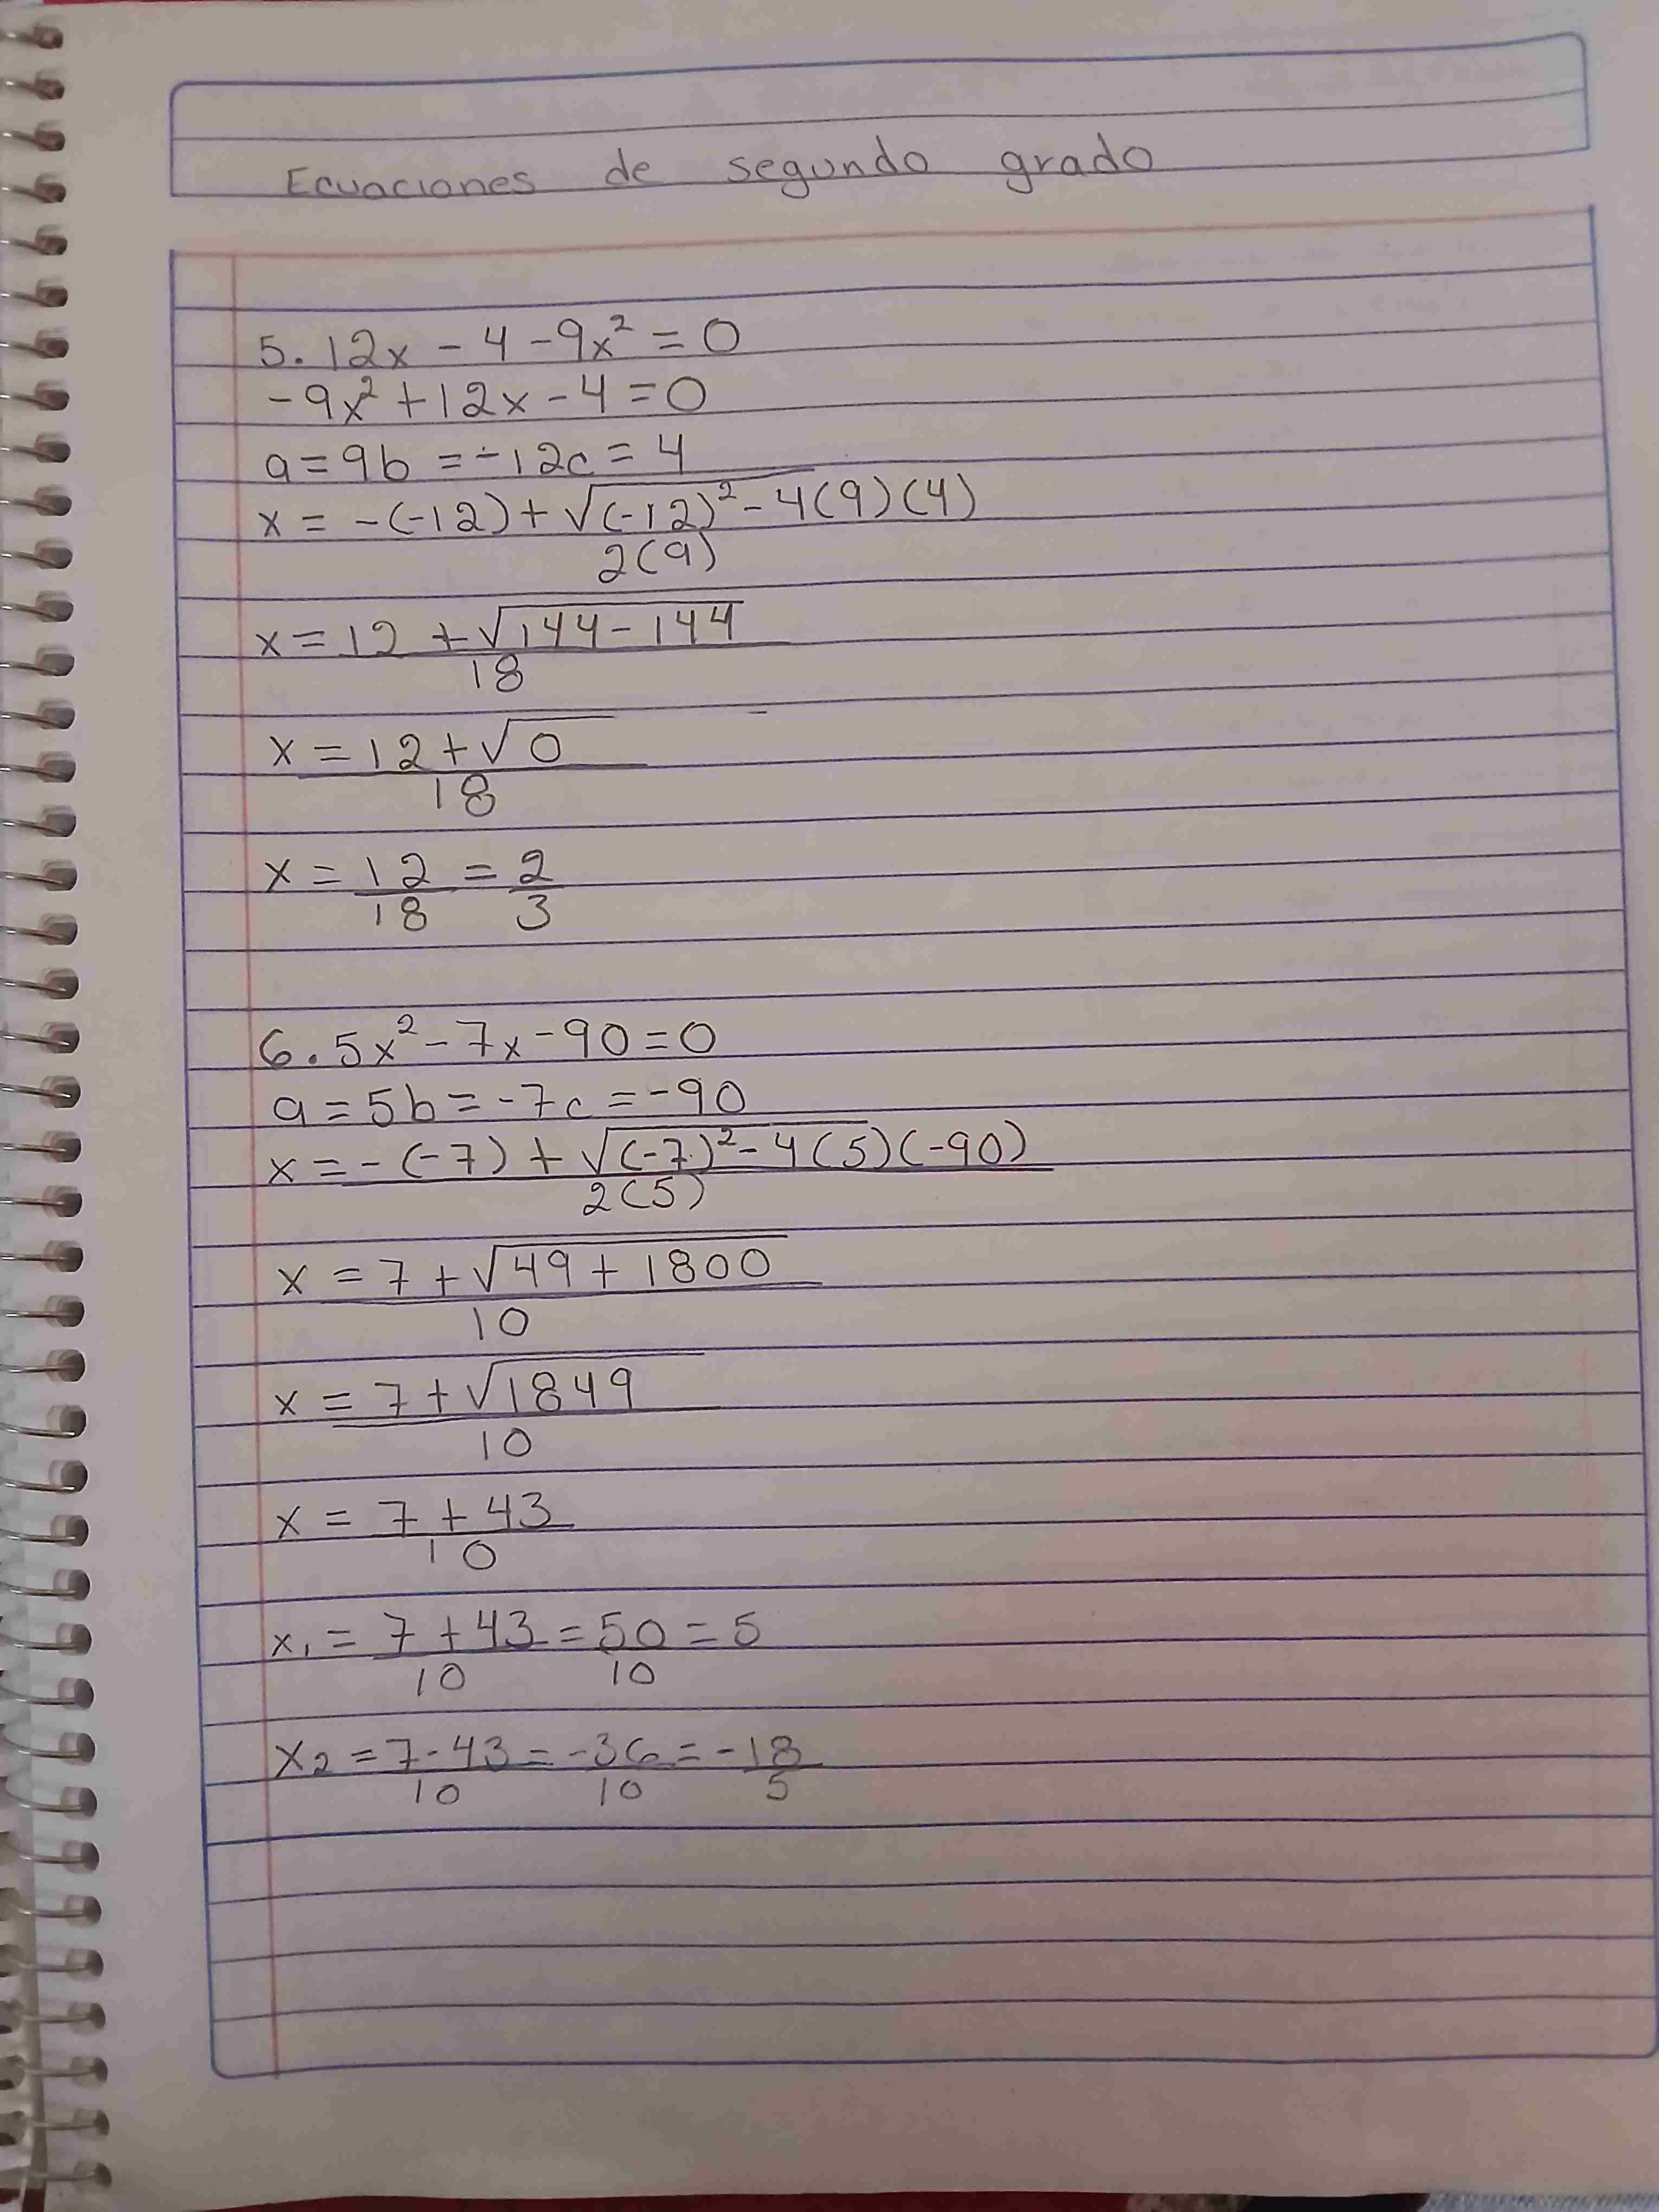 Ecuaciones de segundo grado
5. 12x - 4 - 9x² = 0
-9x² + 12x - 4 = 0
a = 9 b = -12 c = 4
x = -(-12) + √(-12)² - 4(9)(4)
2(9)
x = 12 + √144 - 144
18
x = 12 + √0
18
x = 12 = 2
18 3
6. 5x² - 7x - 90 = 0
a = 5 b = -7 c = -90
x = -(-7) + √(-7)² - 4(5)(-90)
2(5)
x = 7 + √49 + 1800
10
x = 7 + √1849
10
x = 7 + 43
10
x₁ = 7 + 43 = 50 = 5
10 10
x₂ = 7 - 43 = -36 = -18
10 10 5